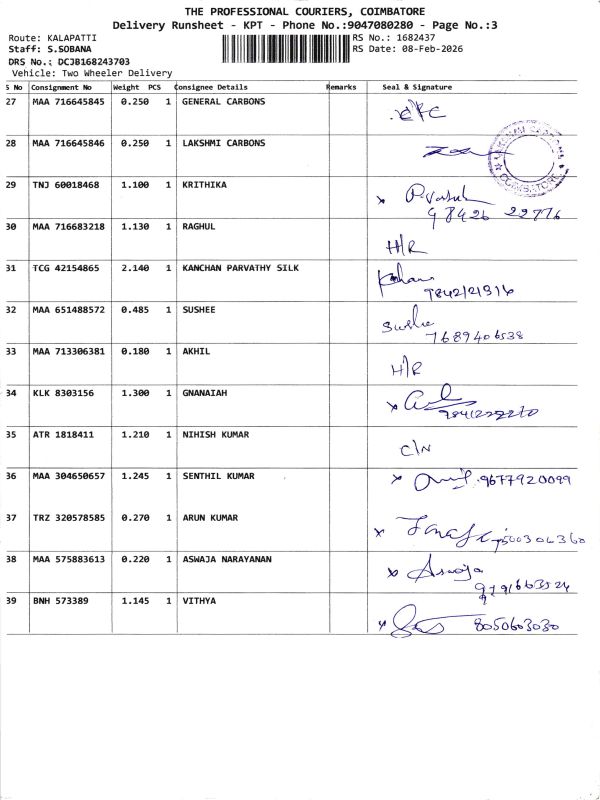 THE PROFESSIONAL COURIERS, COIMBATORE
Delivery Runsheet - KPT - Phone No.:9047080280 - Page No.:3
Route: KALAPATTI RS No.: 1682437
Staff: S.SOBANA RS Date: 08-Feb-2026
DRS No.: DCJB168243703
Vehicle: Two Wheeler Delivery
S No Consignment No Weight PCS Consignee Details Remarks Seal & Signature
27 MAA 716645845 0.250 1 GENERAL CARBONS
28 MAA 716645846 0.250 1 LAKSHMI CARBONS
COIMBATORE
29 TNJ 60018468 1.100 1 KRITHIKA
98426 22776
30 MAA 716683218 1.130 1 RAGHUL H/R
31 TCG 42154865 2.140 1 KANCHAN PARVATHY SILK
32 MAA 651488572 0.485 1 SUSHEE Sushe
7689406538
33 MAA 713306381 0.180 1 AKHIL H/R
34 KLK 8303156 1.300 1 GNANAIAH
35 ATR 1818411 1.210 1 NIHISH KUMAR C/N
36 MAA 304650657 1.245 1 SENTHIL KUMAR 9677920099
37 TRZ 320578585 0.270 1 ARUN KUMAR
38 MAA 575883613 0.220 1 ASWAJA NARAYANAN
39 BNH 573389 1.145 1 VITHYA 8050603030